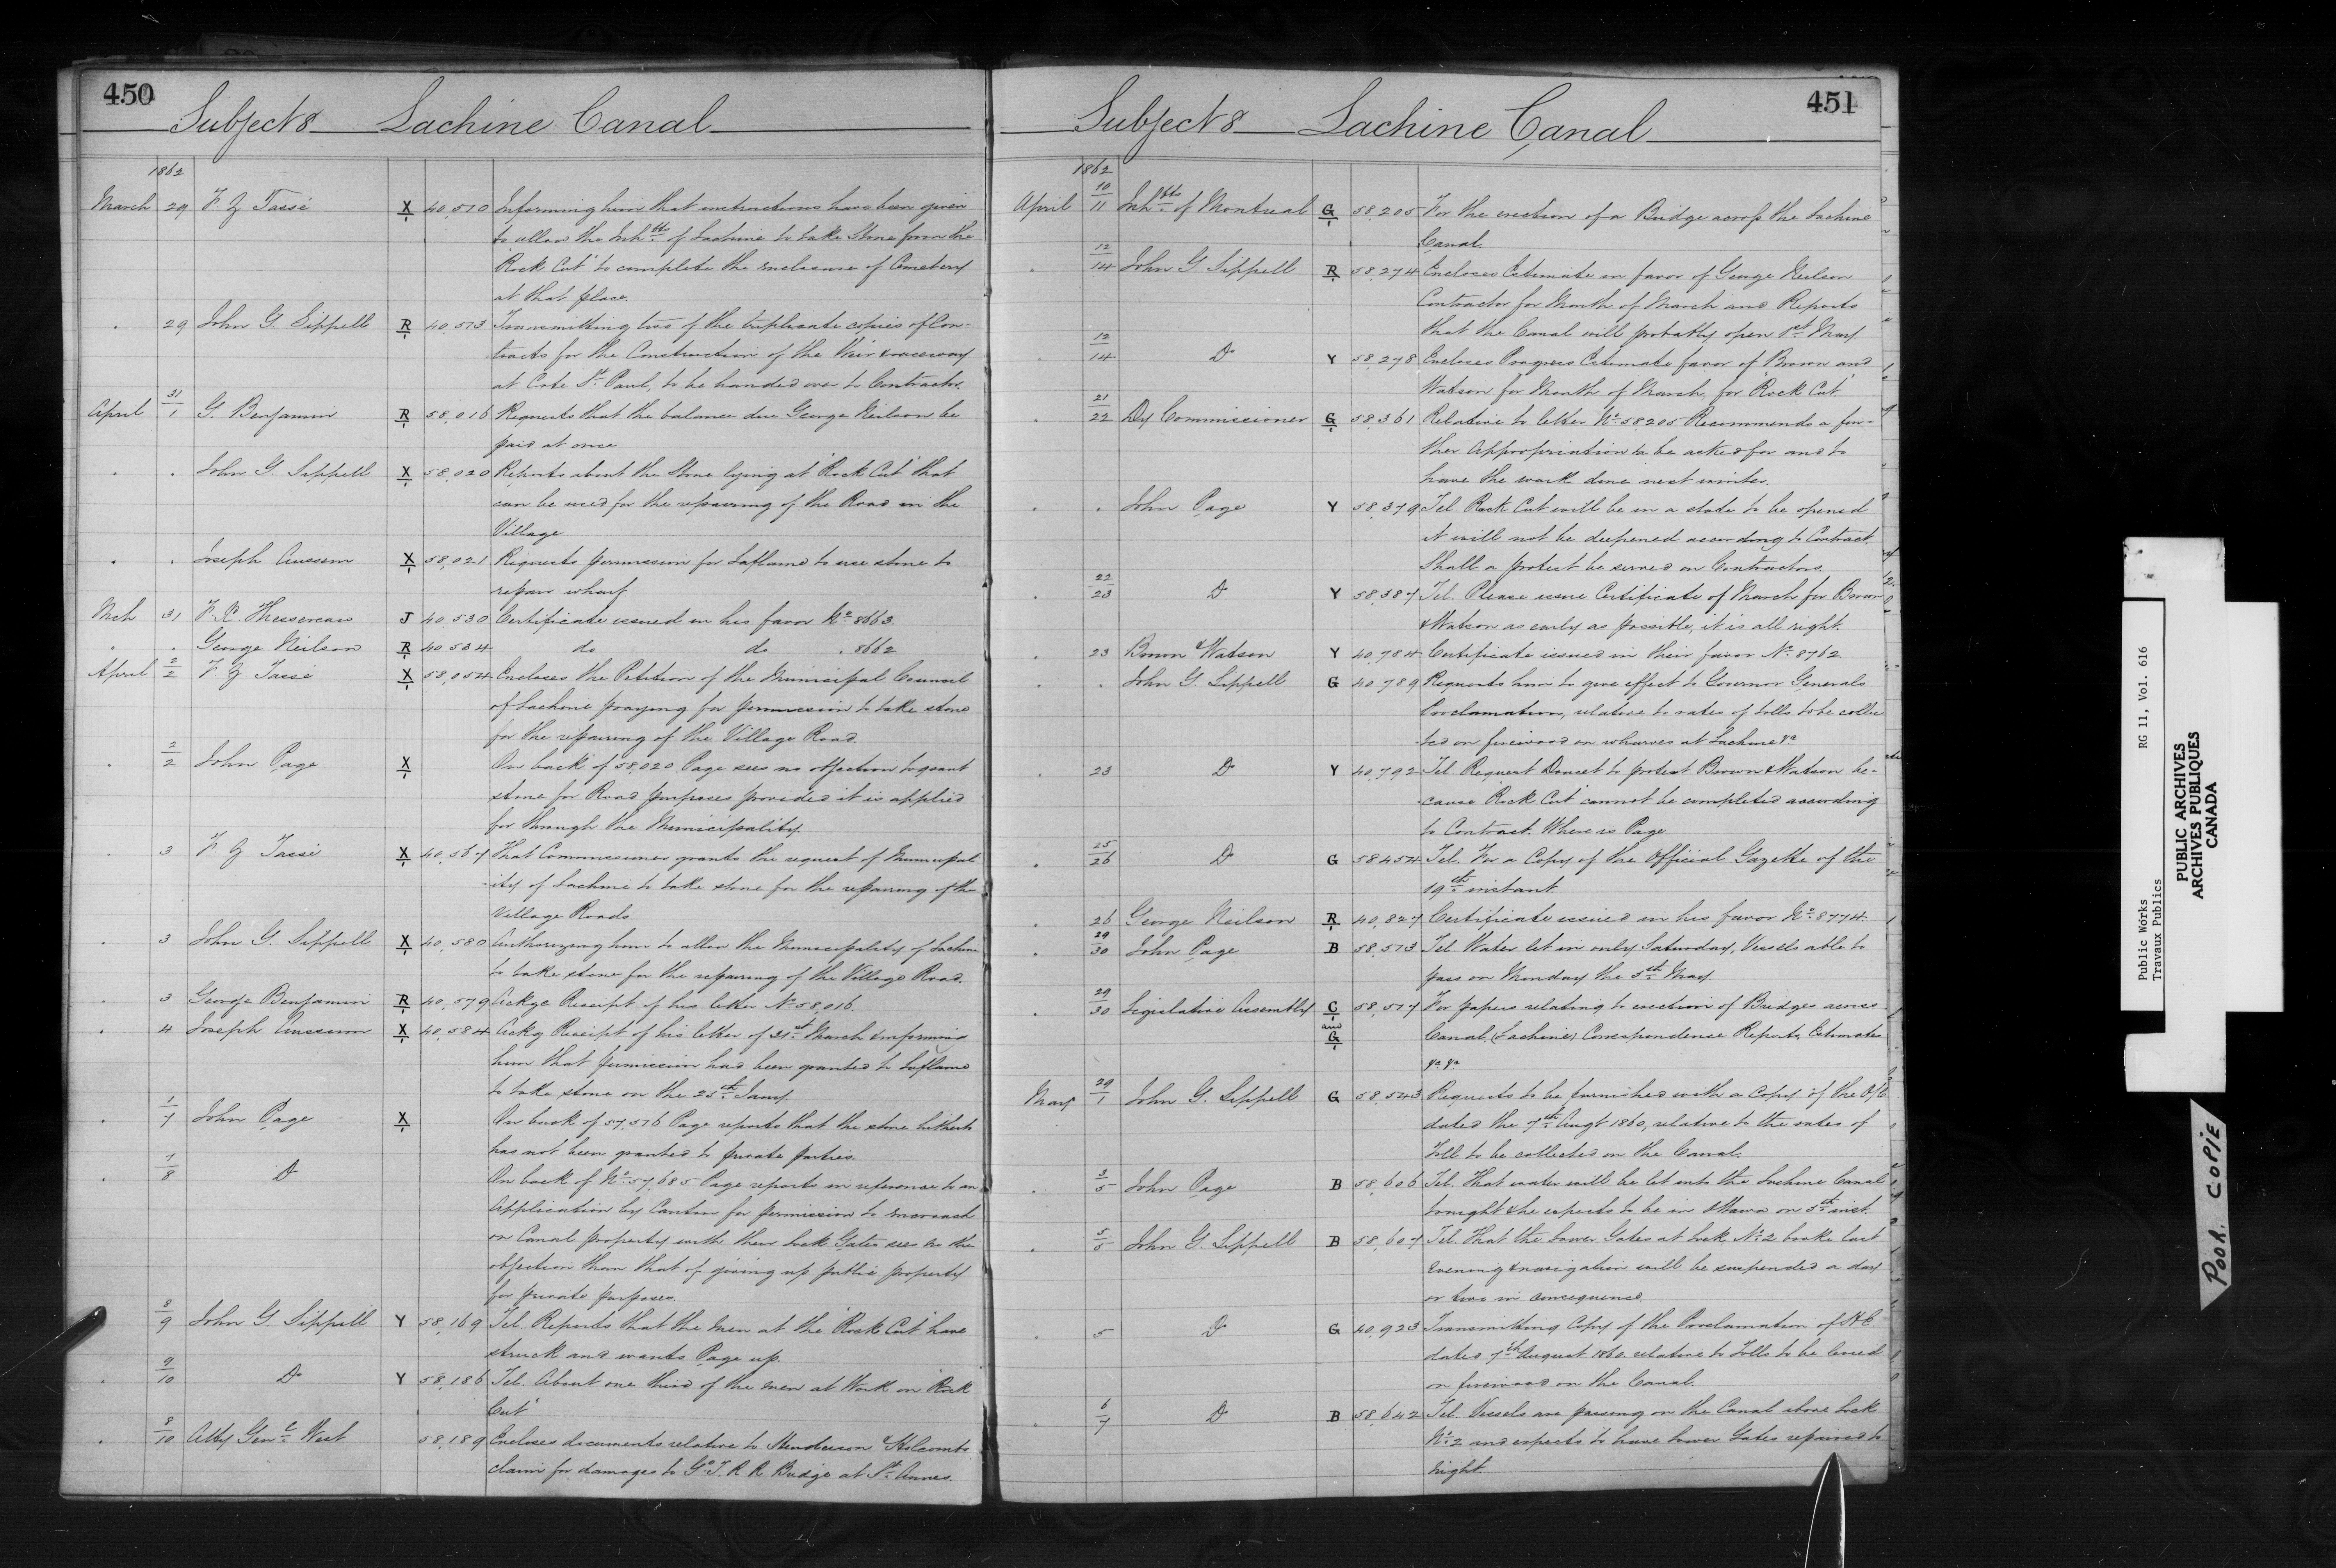 450
Subjects Lachine Canal
1862
March 29 F. Z Tassé X/1 40,510 Informing him that instructions have been given
to allow the Inhts. of Lachine to take Stone from the
"Rock Cut" to complete the enclosure of Cemetery
at that place.
. 29 John G. Sippell R/1 40,513 Transmitting two of the triplicate copies of Con-
tracts for the Construction of the Weir & raceway
at Cote St. Paul, to be handed over to Contractor.
April 31/1 G. Benjamin R/1 58,016 Requests that the balance due George Neilson be
paid at once
. . John G. Sippell X/1 58,020 Reports about the Stone lying at "Rock Cut" that
can be used for the repairing of the Road in the
Village
. . Joseph Aussem X/1 58,021 Requests permission for Laflamme to use stone to
repair wharf
Mch 31 J 40,530 Certificate issued in his favor No. 8663.
. . George Neilson R/1 40,534 do do . 8662
April 2/2 F Z Tassé X/1 58,054 Encloses the Petition of the Municipal Council
of Lachine praying for permission to take stone
for the repairing of the Village Road.
. 2/2 John Page X/1 On back of 58,020 Page sees no objection to grant
stone for Road purposes provided it is applied
for through the Municipality.
. 3 F. Z Tassé X/1 40,567 That Commissioner grants the request of Municipal-
ity of Lachine to take stone for the repairing of the
Village Roads.
. 3 John G. Sippell X/1 40,580 Authorizing him to allow the Municipality of Lachine
to take stone for the repairing of the Village Road.
. 3 George Benjamin R/1 40,579 Ackge Receipt of his letter No. 58,016.
. 4 Joseph Aussem X/1 40,584 Ackg Receipt of his letter of 31st. March informing
him that permission had been granted to Laflamme
to take stone on the 25th. Jany.
. 1/7 John Page X/1 On back of 57,576 Page reports that the stone hitherto
has not been granted to private parties.
. 7/8 Do On back of No. 57,685 Page reports in reference to an
Application by Cantin for permission to encroach
on Canal property with their Lock Gates sees no other
objection than that of giving up public property
for private purposes.
. 8/9 John G. Sippell Y 58,169 Tel. Reports that the men at the "Rock Cut" have
struck and wants Page up.
. 9/10 Do Y 58,186 Tel. About one third of the men at Work on "Rock
Cut"
. 8/10 Atty Genl. West 58,189 Encloses documents relative to Henderson & Holcombs
claim for damages to G. T. R R Bridge at St. Annes.
451
Subjects Lachine Canal
1862
April 10/11 Inhbts. of Montreal G/1 58,205 For the erection of a Bridge across the Lachine
Canal.
. 12/14 John G. Sippell R/1 58,274 Encloses Estimate in favor of George Neilson
Contractor for Month of March and Reports
that the Canal will probably open 1st. May
. 12/14 Do Y 58,278 Encloses Progress Estimate favor of Brown and
Watson for Month of March, for "Rock Cut."
. 21/22 Dy Commissioner G/1 58,361 Relative to letter No. 58,205 Recommends a fur-
ther Appropriation to be asked for and to
have the work done next winter.
. . John Page Y 58,379 Tel Rock Cut will be in a state to be opened
it will not be deepened according to Contract.
Shall a protest be served on Contractors.
. 22/23 Do Y 58,387 Tel. Please issue Certificate of March for Brown
& Watson as early as possible, it is all right.
. 23 Brown & Watson Y 40,784 Certificate issued in their favor No. 8762
. . John G. Sippell G 40,789 Requests him to give effect to Governor Generals
Proclamation, relative to rates of tolls to be collec
ted on firewood on wharves at Lachine &c.
. 23 Do Y 40,792 Tel. Request Doucet to protest Brown & Watson be-
cause "Rock Cut" cannot be completed according
to Contract. Where is Page
. 25/26 Do G 58,454 Tel. For a Copy of the Official Gazette of the
19th. instant.
. 26 George Neilson R/1 40,827 Certificate issued in his favor No. 8774.
. 29/30 John Page B 58,513 Tel Water let in only Saturday, Vessels able to
pass on Monday the 5th. May.
. 29/30 Legislative Assembly C/1 and G/1 58,517 For papers relating to erection of Bridges across
Canal, (Lachine) Correspondence Reports, Estimates
&c. &c.
May 29/1 John G. Sippell G 58,543 Requests to be furnished with a Copy of the O/C
dated the 7th. Augt 1860, relative to the rates of
Toll to be collected on the Canal.
. 3/5 John Page B 58,606 Tel. That water will be let into the Lachine Canal
tonight & he expects to be in Ottawa on 5th. inst.
. 5/5 John G. Sippell B 58,607 Tel. That the Lower Gates at Lock No. 2 broke last
evening & navigation will be suspended a day
or two in consequence.
. 5 Do G 40,923 Transmitting Copy of the Proclamation of
dated 7th. August 1860. relative to Tolls to be levied
on firewood on the Canal.
. 6/7 Do B 58,642 Tel. Vessels are passing on the Canal above Lock
No. 2 and expects to have lower Gates repaired to
night.
Public Works RG 11, Vol. 616
Travaux Publics
PUBLIC ARCHIVES
ARCHIVES PUBLIQUES
CANADA
POOR COPIE